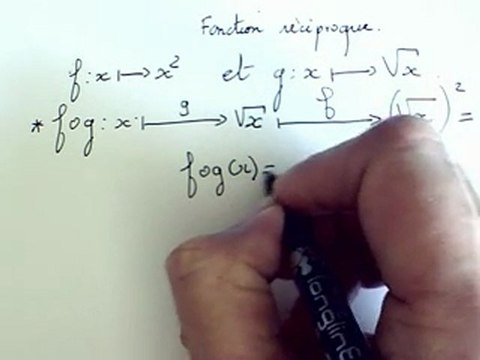 Fonction réciproque.
f : x ⟼ x² et g : x ⟼ √x.
* fog : x ⟼ᵍ √x ⟼ᶠ (√x)² =
fog(x) =
longline